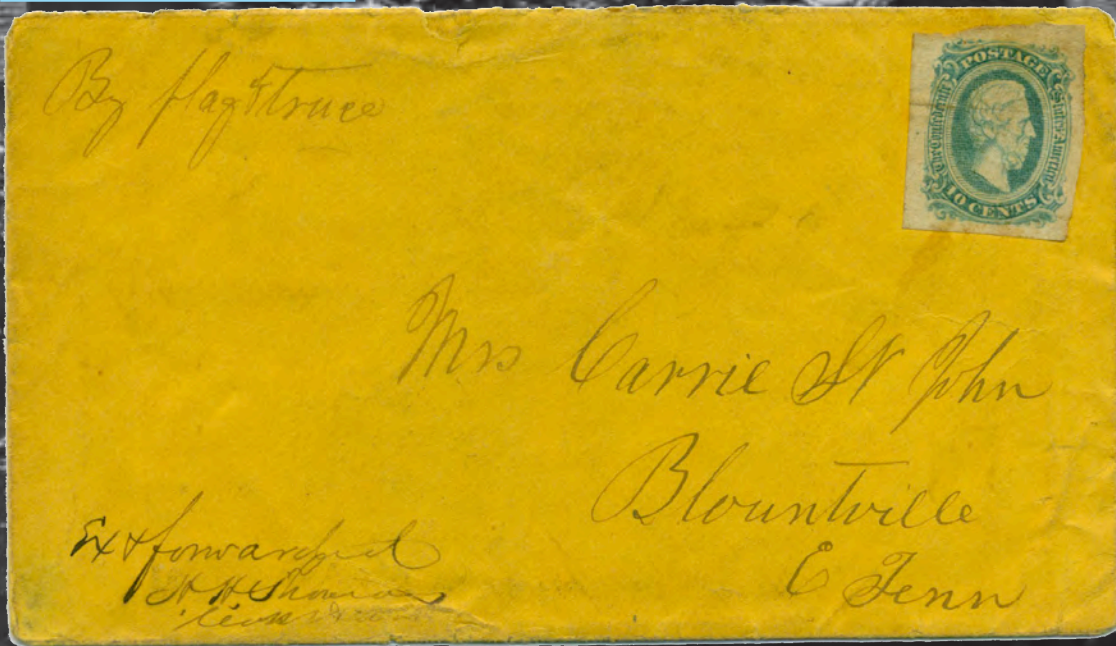 By flag of truce
POSTAGE
The Confederate States America
10 CENTS
Mrs Carrie St John
Blountville
E Tenn
Ex & forwarded